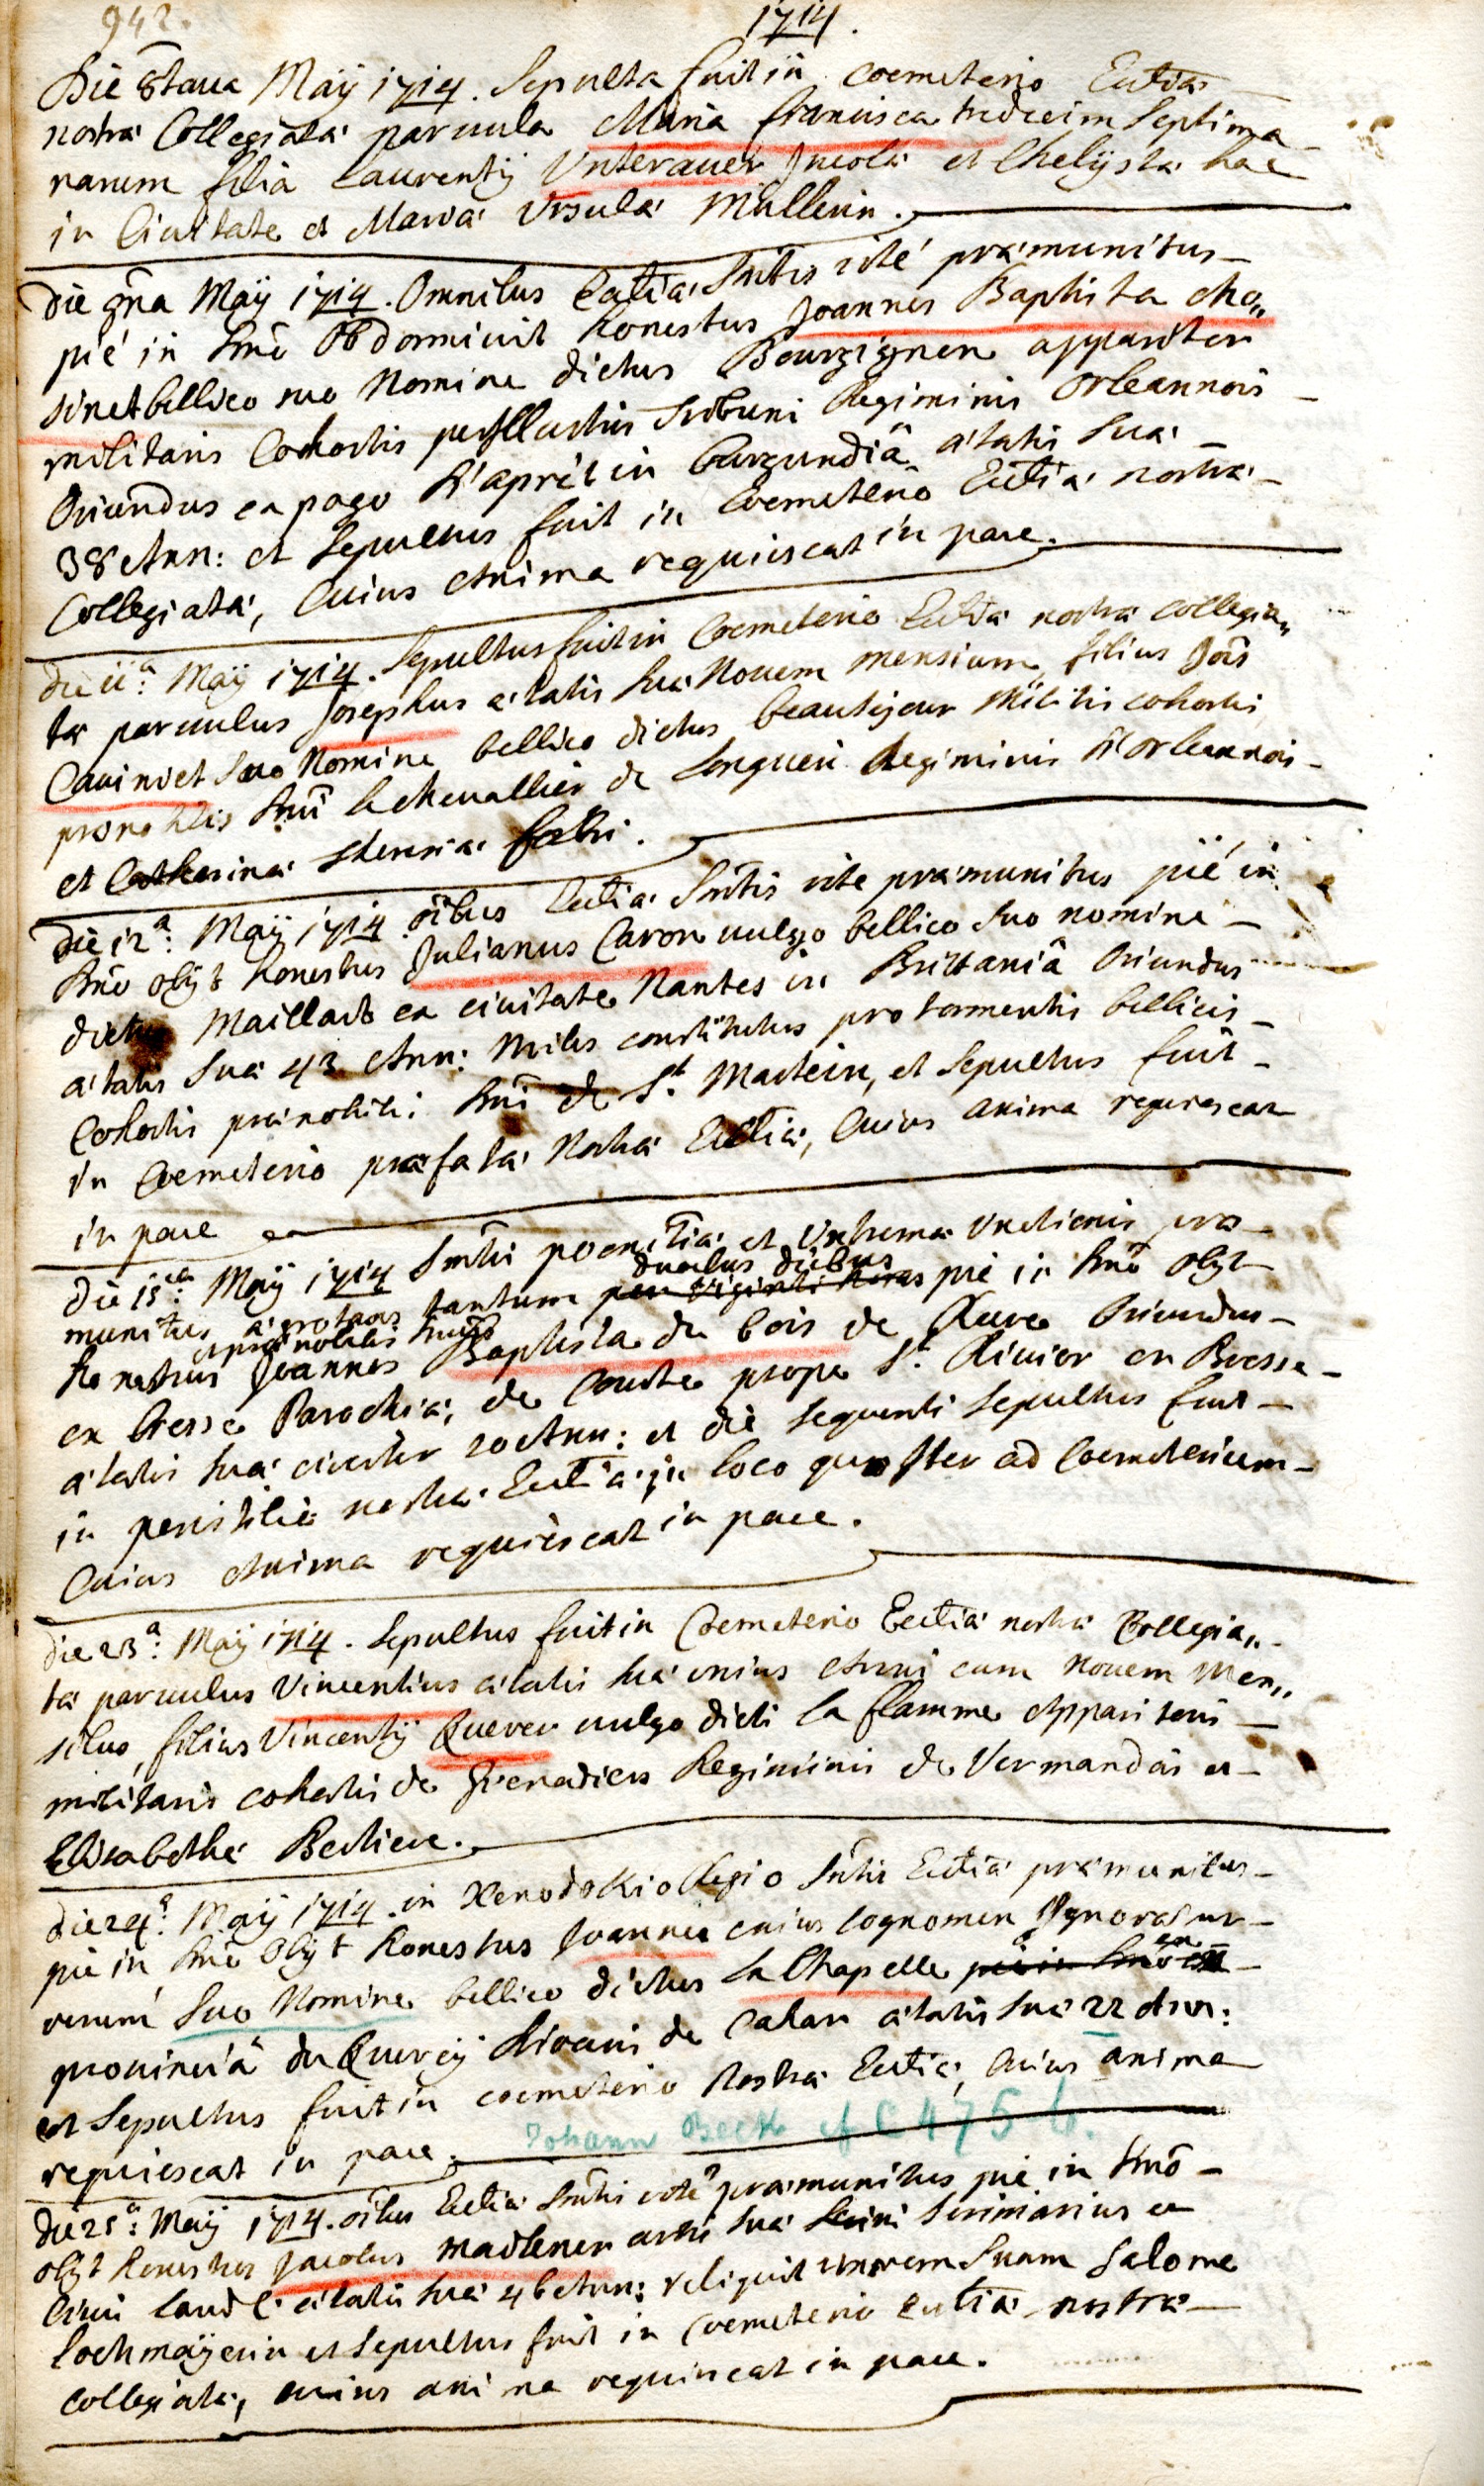 942.
1714.
Die 8tava Maÿ 1714. Sepulta fuit in coemeterio Eccliæ
nostræ Collegiatæ parvula Maria francisca tredecim Septima
narum filia Laurentÿ Unterauer Incolæ et Chelystæ hac
in Civitate et Mariæ Ursulæ Mullerin.
Die 9na Maÿ 1714. Omnibus Eccliæ Sntis rité præmunitus
pié in Dnô Obdormivit honestus Joannes Baptista cho„
sinet bellico suo Nomine dictus Bourgignon apparitor
militaris Cohortis perillustris Tribuni Regiminis Orleannois
Oriundus ex pago in Burgundiâ ætatis suæ
38 Ann: et Sepultus fuit in Coemeterio Eccliæ nostræ
Collegiatæ, Cuius Anima requiescat in pace.
Die 11ª: Maÿ 1714. Sepultus fuit in Coemeterio Eccliæ nostræ collegia„
tæ parvulus Josephus ætatis suæ Novem mensium, filius Jois
Caviniet suo Nomine bellico dictus beausejour Militis cohortis
prænobilis Dni le chevallier de Longueri Regiminis d'orleannois
et Catherinæ
Die 12ª: Maÿ 1714. oibus Eccliæ Sntis rite præmunitus pié in
Dnô obÿt honestus Julianus Caron vulgo bellico suo nomine
dictus Maillard ex civitate Nantes in Brittaniâ Oriundus
ætatis suæ 43 Ann: Miles constitutus pro tormentis bellicis
Cohortis prænobilis Dni de St. Martein, et Sepultus fuit
in Coemeterio præfatæ Nostræ Eccliæ, Cuius anima requiescat
in pace
Die 15ª: Maÿ 1714 Snti poenitiæ et Extremæ Unctionis præ
munitus ægrotans tantum duobus diebus pié in Dnô obÿt
honestus et prænobilis Joannes Baptista du bois de Oriundus
ex Bresse Parochiæ, de prope St. Rivier en Bresse
ætatis suæ circiter 20 Ann: et die sequenti sepultus fuit
in peristilio nostræ Eccliæ in loco quo Iter ad Coemeterium
Cuius Anima requiescat in pace.
Die 23ª: Maÿ 1714. Sepultus fuit in Coemeterio Eccliæ nostræ Collegia„
tæ parvulus Vincentius ætatis suæ unius Anni cum Novem Men„
sibus, filius Vincentÿ Querer vulgo dicti la flamme Apparitoris
militaris cohortis de Grenadiers Regiminis de Vermandois et
Elisabethæ Bertiere.
Die 24ª: Maÿ 1714. in Xenodokio Regio Sntis Eccliæ præmunitus
pié in Dnô Obÿt honestus Joannes cuius cognomen Ignoratur
verum suo Nomine bellico dictus La Chapelle ex
provinciâ du Quercÿ de ætatis suæ 22 Ann:
et Sepultus fuit in coemeterio Nostræ Eccliæ, Cuius anima
requiescat in pace.
Johann Beck cf C 475 b.
Die 25ª: Maÿ 1714. oibus Eccliæ Sntis rité præmunitus pié in Dnô
obÿt honestus Jacobus Madlener artis suæ Scriniarius et
Civis ætatis suæ 46 Ann: reliquit uxorem suam Salome
Lochmaÿerin et Sepultus fuit in Coemeterio Eccliæ nostræ
collegiatæ, cuius anima requiescat in pace.